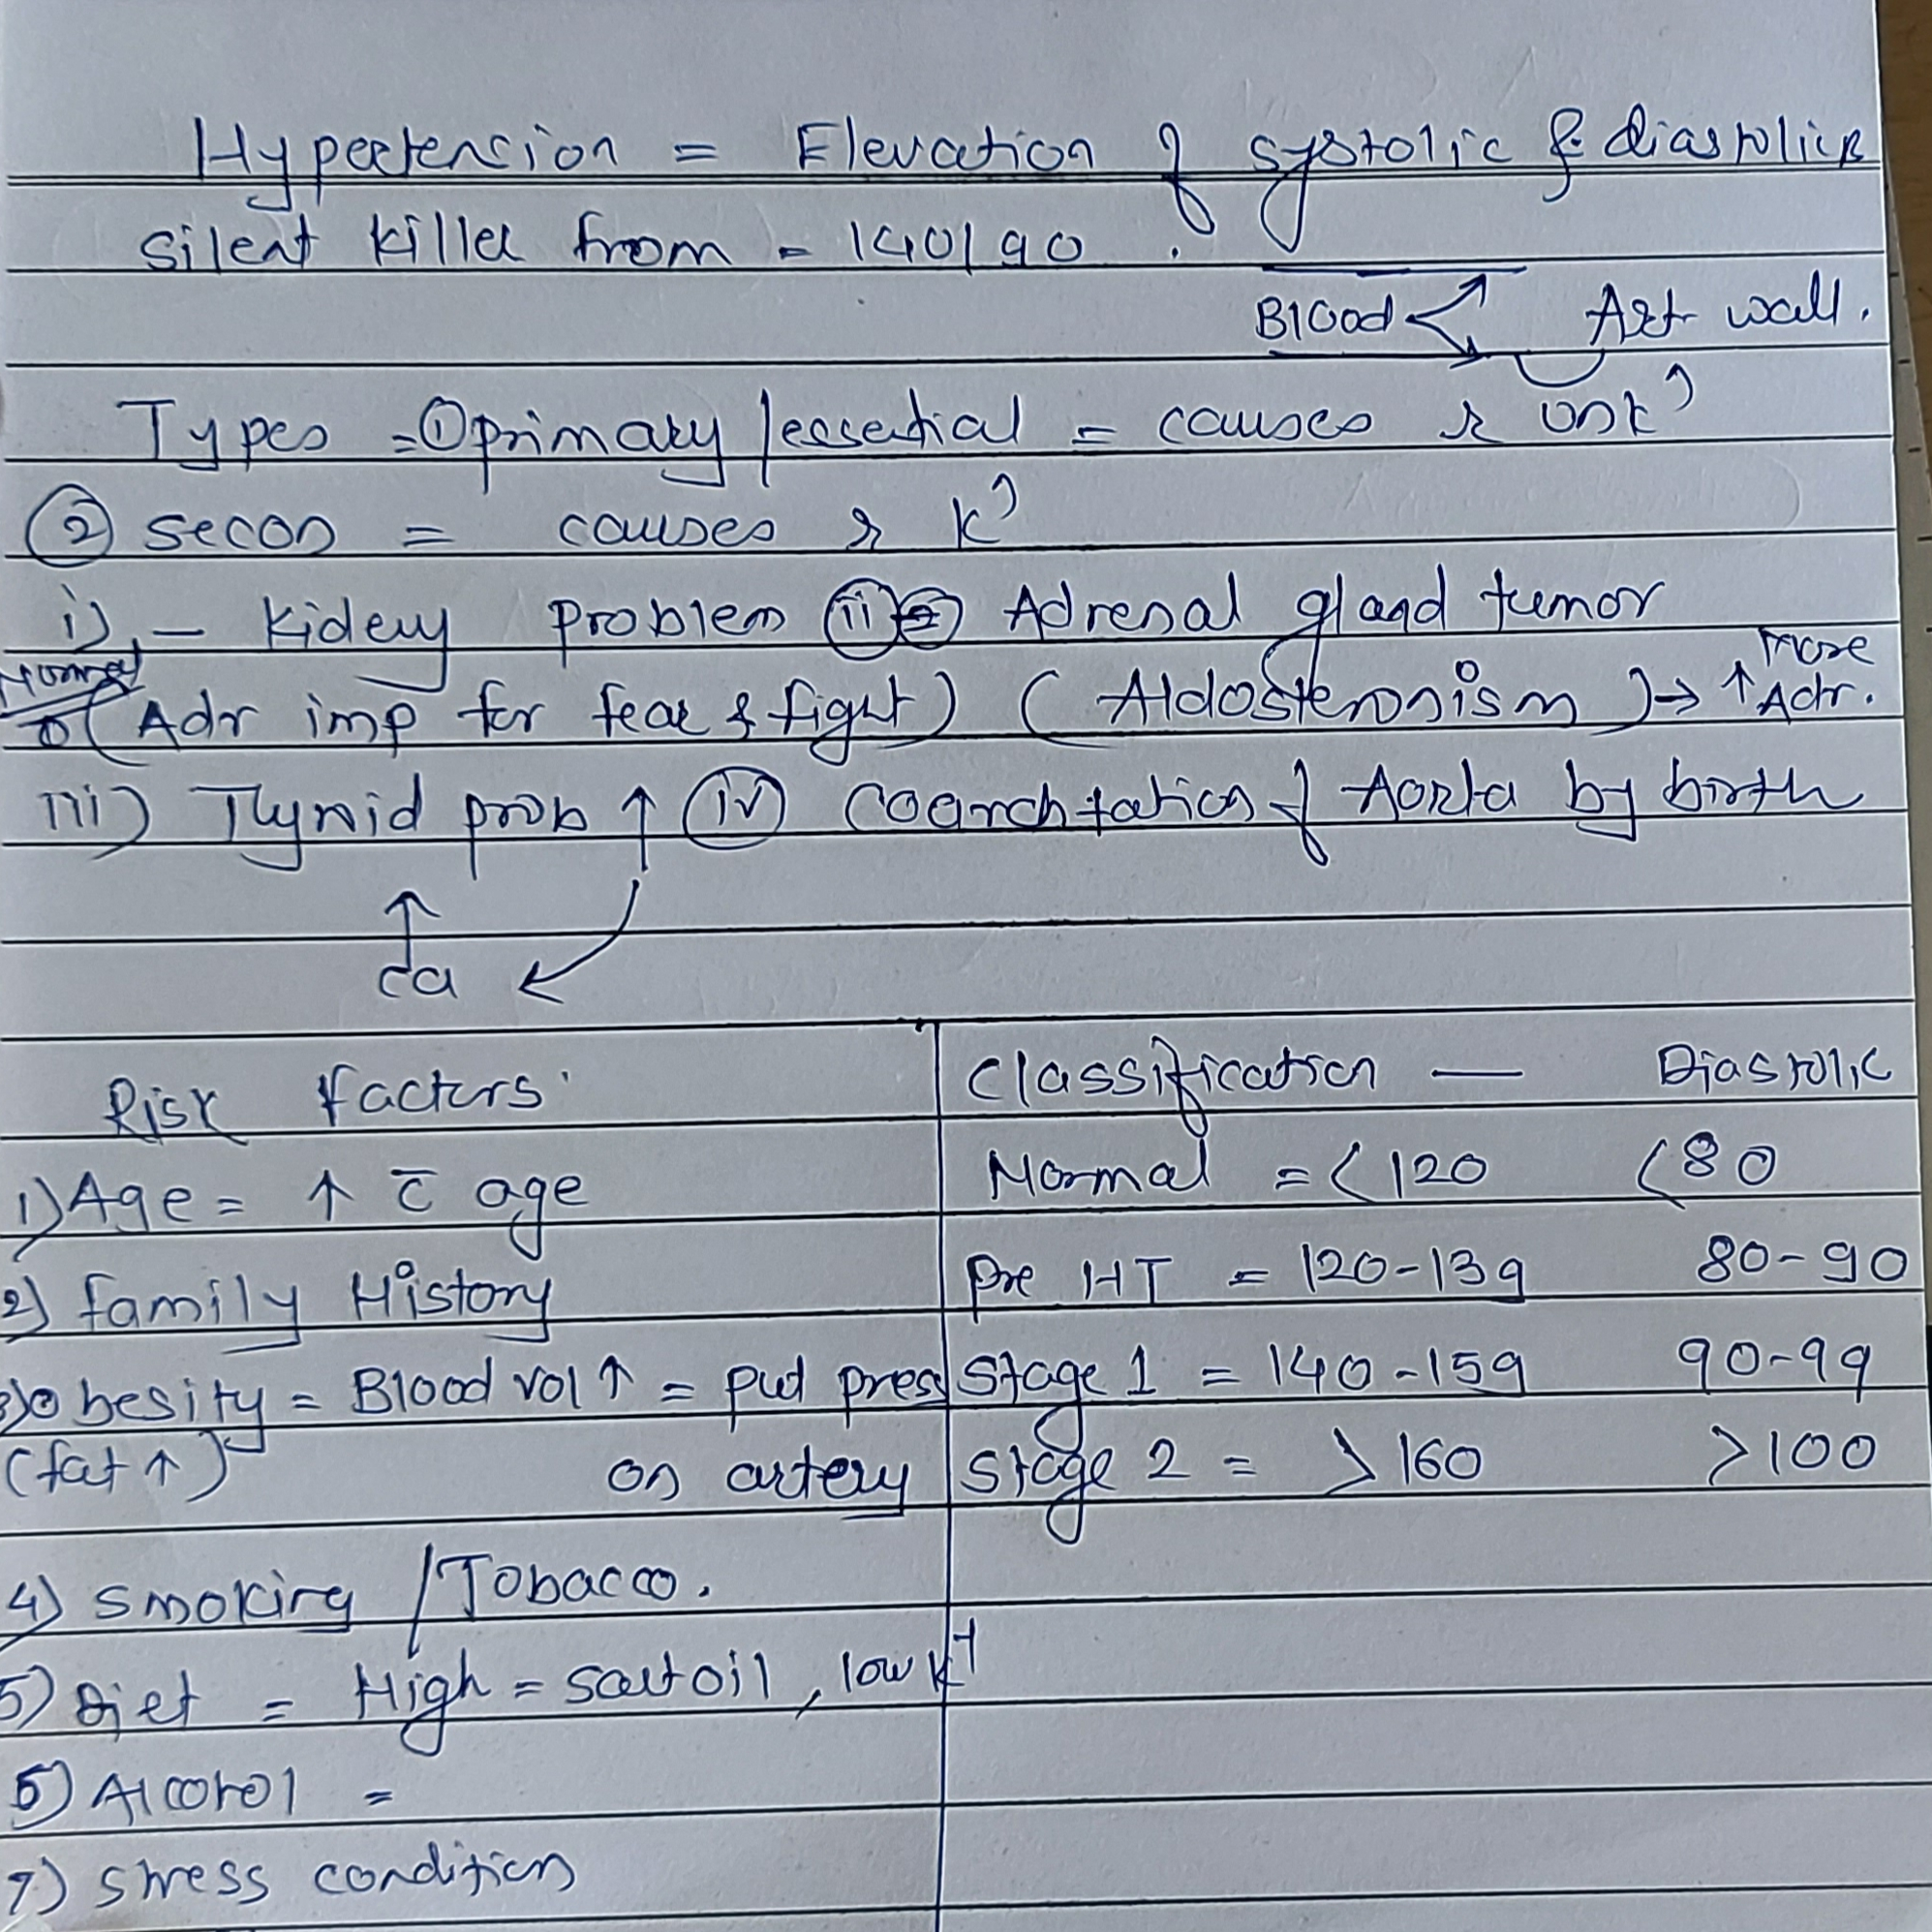 Hypertension = Elevation of systolic & diastolic
silent killer from - 140/90 .
Blood < Art wall.
Types = ① primary / essential = causes r unk?
② secon = causes r k?
i) - Kideny problem (ii) Adrenal gland tumor
(Adr imp for fear & fight) (Aldosteronism) → ↑ more Adr.
iii) Thyroid prob ↑ (iv) Coarchtation of Aorta by birth
↑ ca
Risk factors
1) Age = ↑ c̄ age
2) family History
3) Obesity = Blood vol ↑ = put press
(fat ↑) on artery
4) smoking / Tobacco.
5) Diet = High = salt oil, low K+
6) Alcohol =
7) stress condition
Classification — Diastolic
Normal = < 120 < 80
Pre HT = 120-139 80-90
Stage 1 = 140-159 90-99
Stage 2 = > 160 > 100